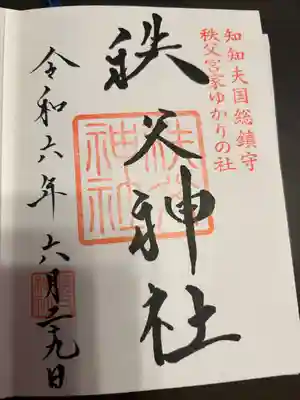 知知夫国総鎮守
秩父宮家ゆかりの社
秩父神社
令和六年六月二九日